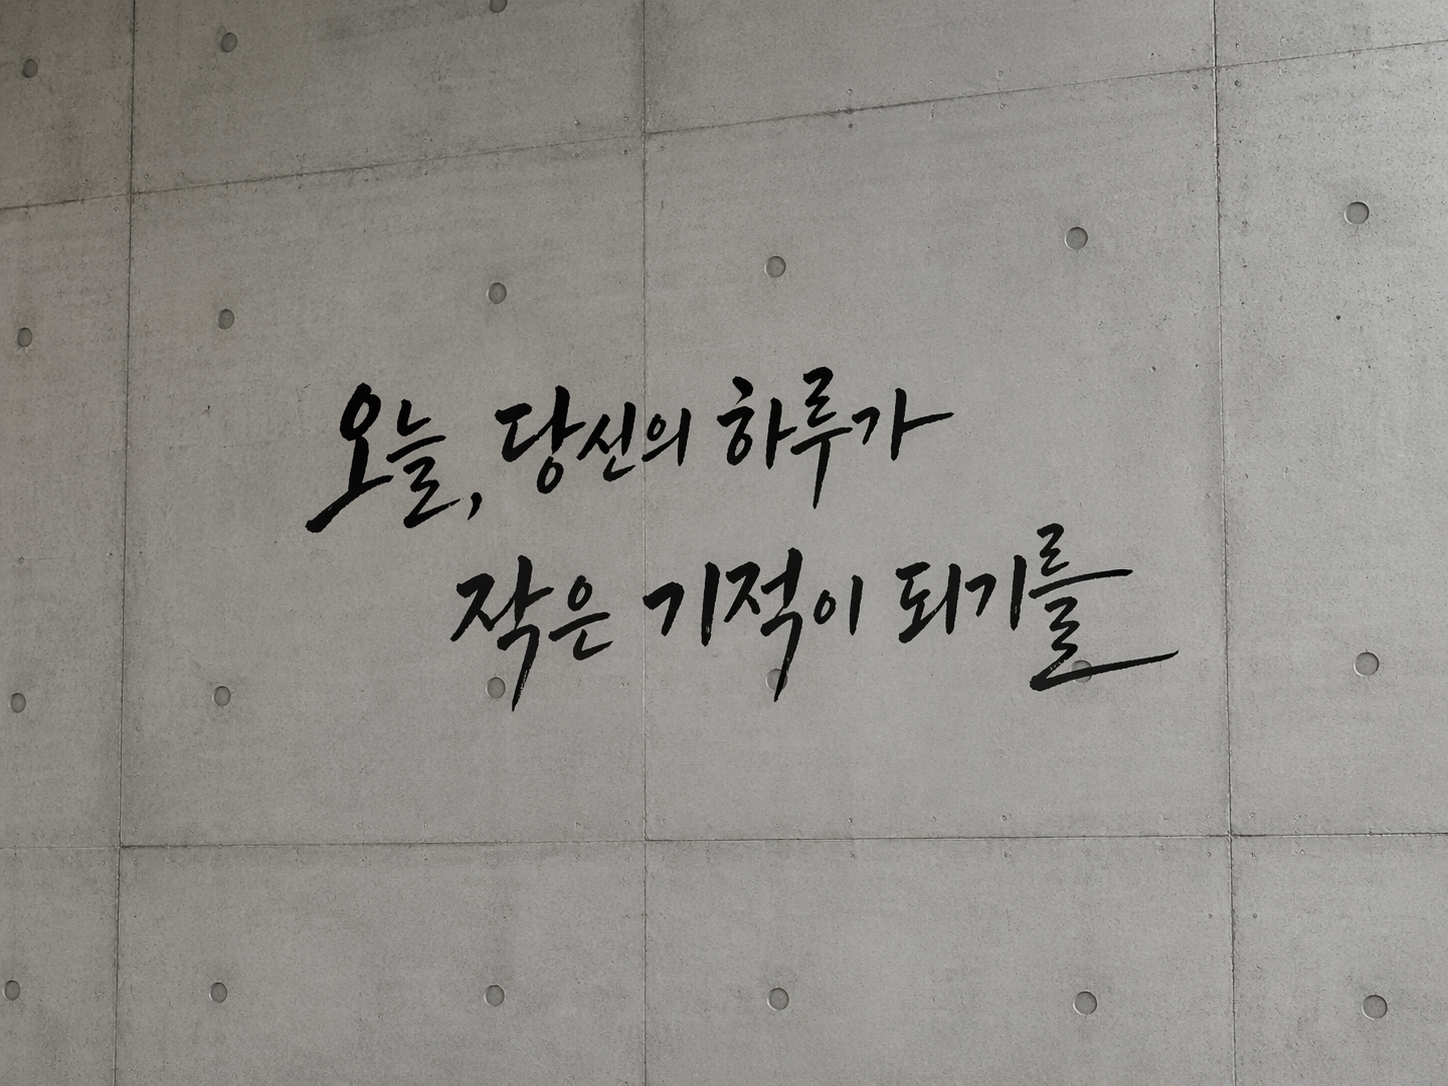 오늘, 당신의 하루가
작은 기적이 되기를